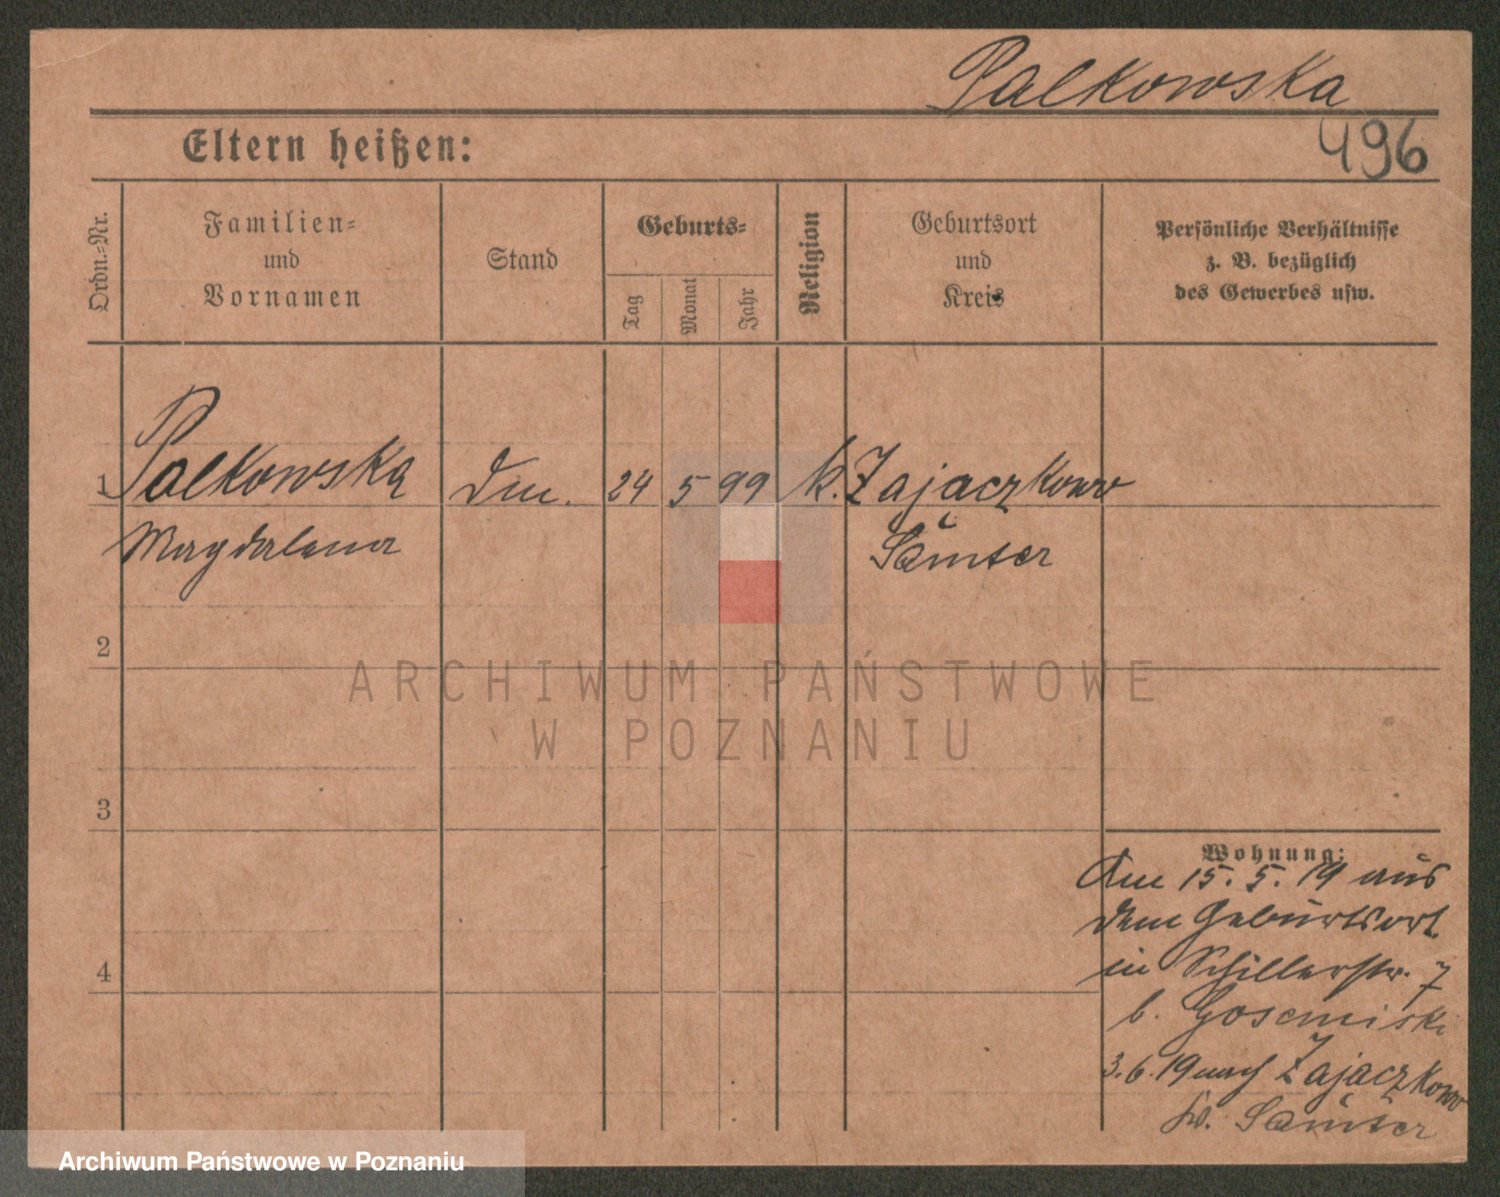 Palkowska
496
Eltern heißen:
Ordn.-Nr.
Familien-
und
Vornamen
Stand
Geburts-
Tag
Monat
Jahr
Religion
Geburtsort
und
Kreis
Persönliche Verhältnisse
z. B. bezüglich
des Gewerbes usw.
1 Palkowska 24 5 99 k. Zajączkowo
Magdalena Samter
2
3
4
Wohnung:
Am 15.5.19 aus
dem Geburtsort
in Schillerstr. 7
b.
3.6.19 nach Zajączkowo
Kr. Samter
ARCHIWUM PAŃSTWOWE
W POZNANIU
Archiwum Państwowe w Poznaniu